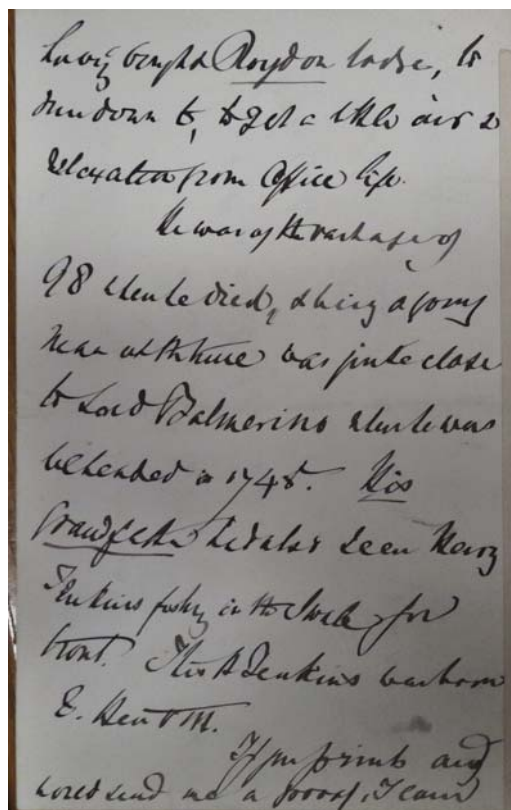 having bought Roydon Lodge, to
run down to, to get a little air &
relaxation from Office life.
He was of the vast age of
98 when he died, & being a young
man at the time was quite close
to Lord Balmerino when he was
beheaded in 1745. His
Grandfather had also seen Henry
Jenkins fishing in the Swale for
trout. This H Jenkins was born
If you print any
wored send me a proof, I can